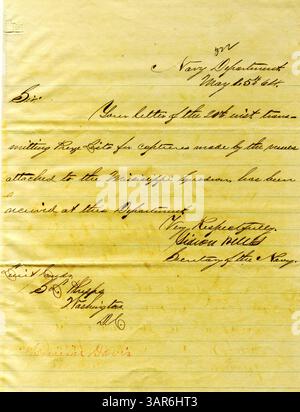 Navy Department
May 25th 64.
Sir
Your letter of the 20th inst trans-
mitting Prize Lists for captures made by the
attached to the Mississippi Squadron has been
received at this Department
Very Respectfully
Gideon Welles
Secretary of the Navy.
Lieut Comdr
S L Phelps
Washington
D.C
alamy
alamy
Image ID: 3AR6HT3
www.alamy.com